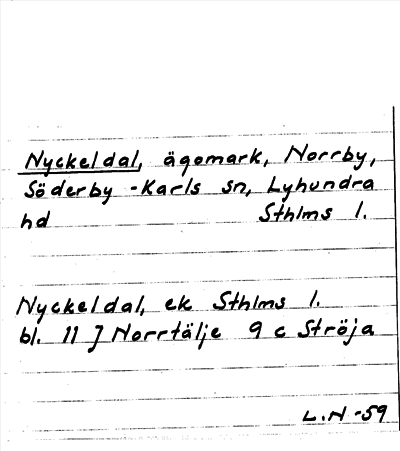 Nyckeldal, ägomark, Norrby,
Söderby-Karls sn, Lyhundra
hd Sthlms l.
Nyckeldal, ek Sthlms l.
bl. 11 J Norrtälje 9 c Ströja
L.N -59